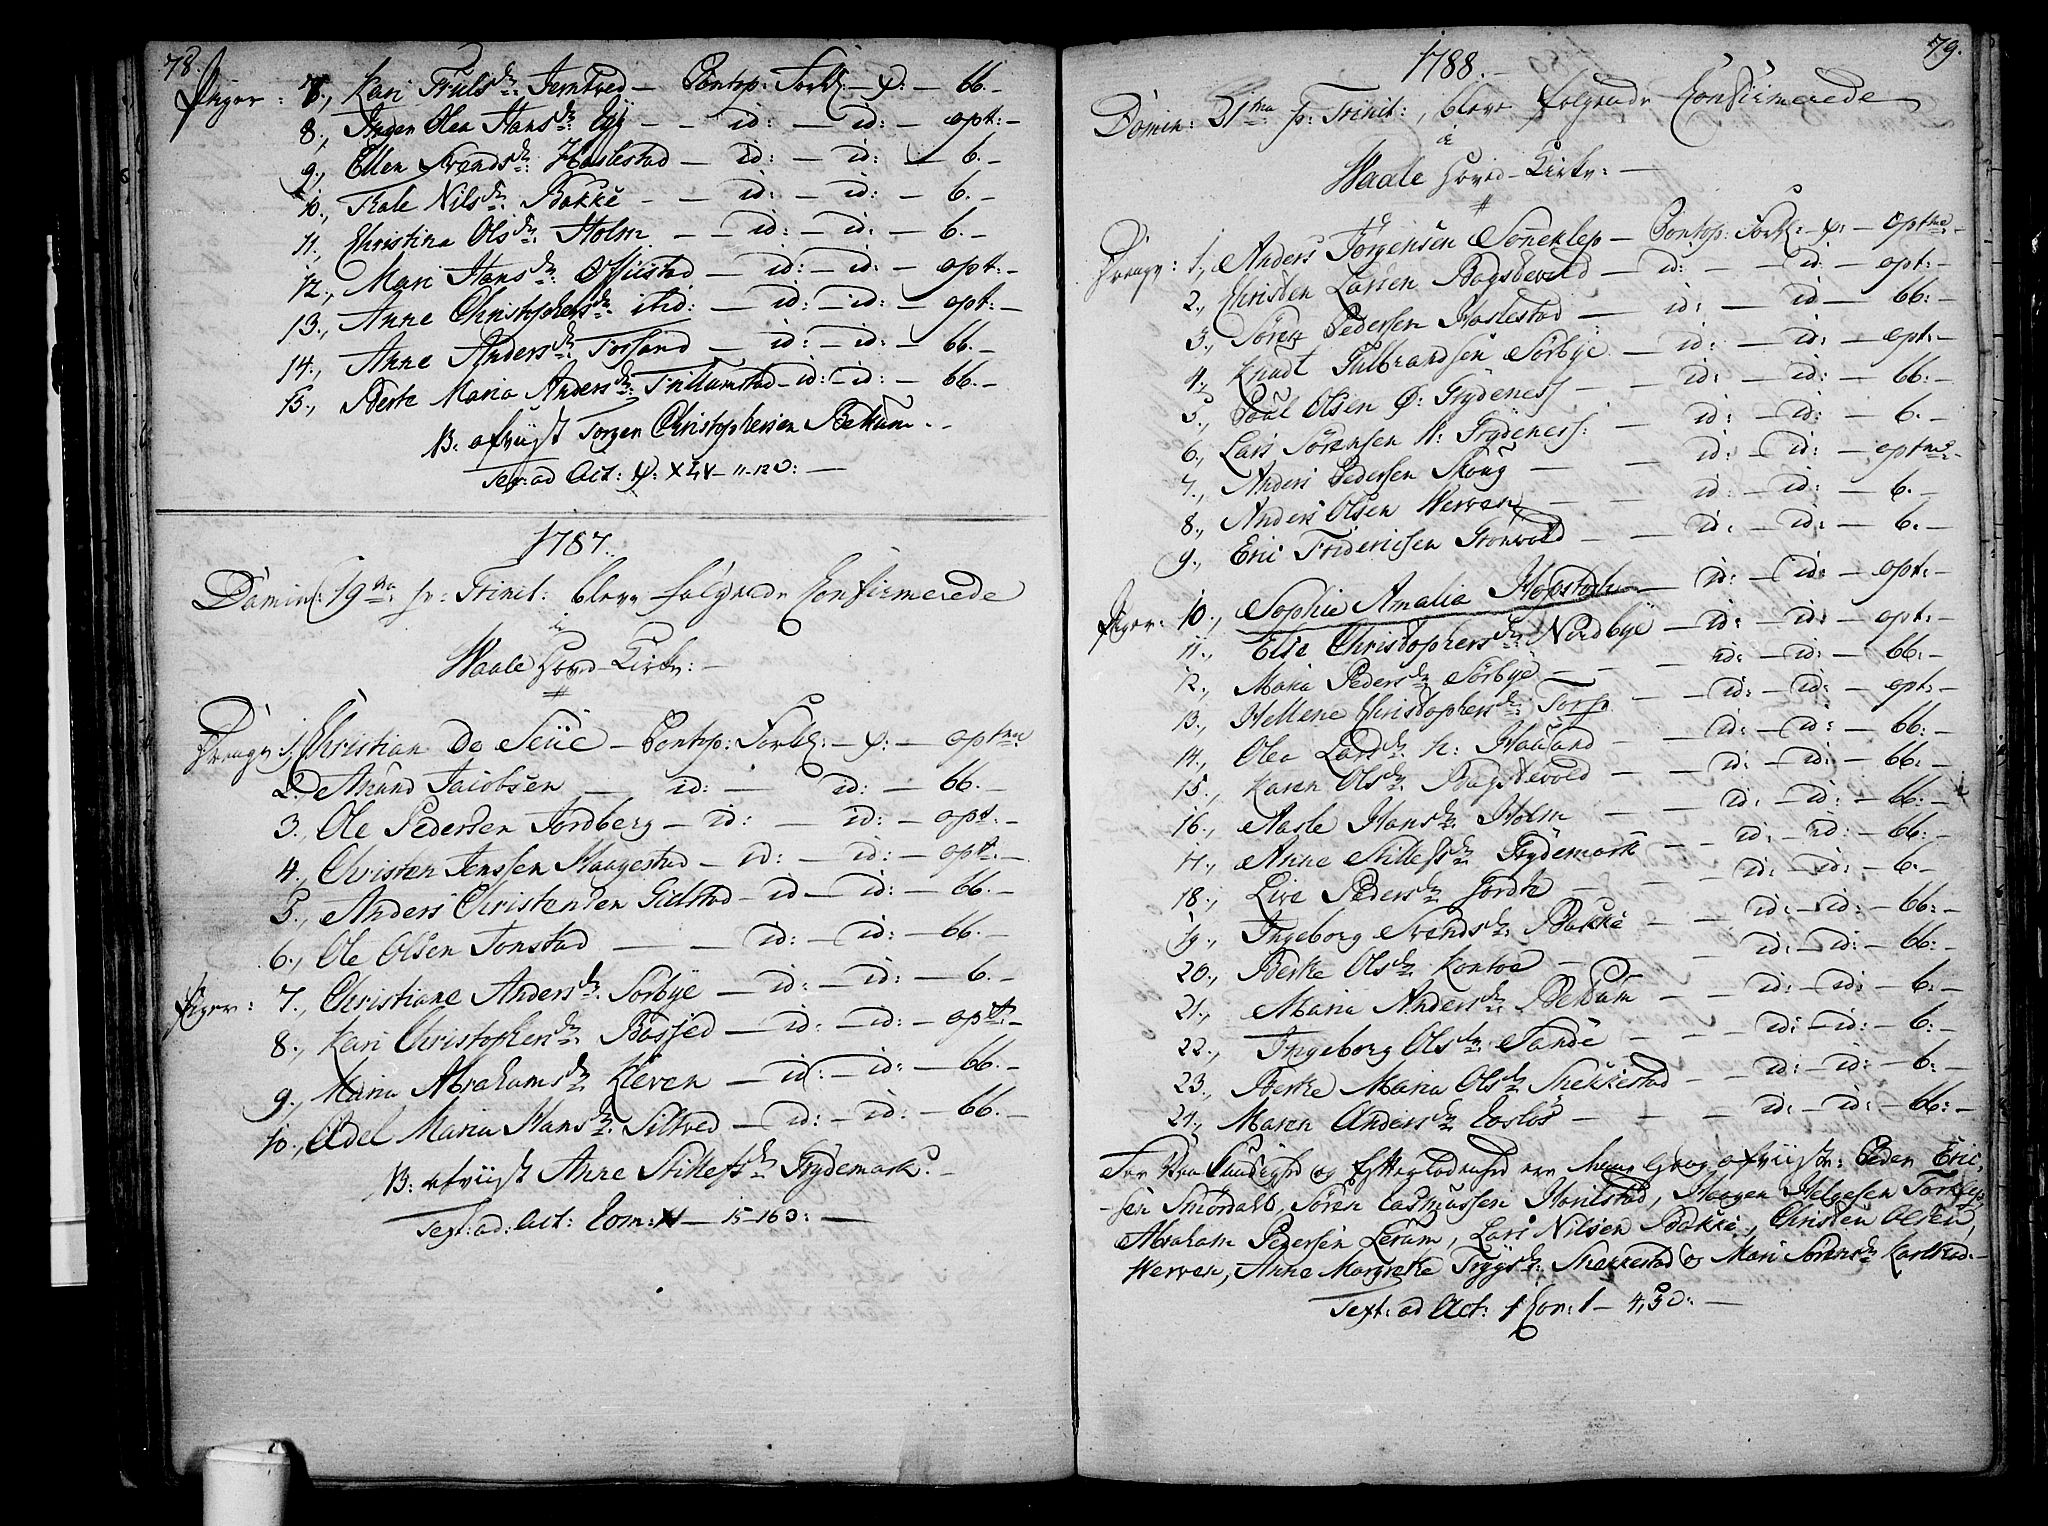 78.
Piger: 7., Kari Truls dr: Jerntved — Pontop: Forkl: — ψ: — bb. —
8., Inger Olea Hans dr: Eÿ — — id: — id: — opt: —
9., Ellen Svends dr: Haslestad — id: — id: — b. —
10., Trale Nils dr: Bakke — — id: — id: — b. —
11., Christina Ols dr: Holm — — id: — id: — b. —
12., Mari Hans dr: Offiistad — id: — id: — opt: —
13., Anne Christophers dr: ibid: — id: — id: — opt: —
14., Anne Anders dr: Forsand — id: — id: — bb. —
15., Berte Maria Anders dr: Trillumstad — id: — id: — bb. —
NB: afviist Jorgen Christophersen Bettum. —
Text: ad Act: ψ: XLV — 11-12 O: —
1787.
Domin: 19na p: Trinit: bleve følgende Confirmerede
i
Waale Hoved-Kirke: —
Drenge 1., Christian De Seüe — Pontop: Forkl: — ψ: — optme
2., Amund Jacobsen — id: — id: — bb. —
3., Ole Pedersen Jordberg — id: — id: — opt. —
4., Christen Jenssen Haugestad — id: — id: — opt: —
5., Anders Christensen Gidstad — id — id: — bb. —
6., Ole Olsen Tonstad — — id: — id: — bb. —
Piger: 7., Christiane Anders dr: Sorbÿe — id: — id: — b. —
8., Kari Christophers dr: Bosjed — id: — id: — opt: —
9., Maria Abrahams dr: Kleven — id: — id: — bb. —
10., Edel Maria Hans dr: Siltved — id: — id: — bb. —
NB: afviist Anne Stillefs dr: Grÿdemark. —
Text: ad: Act: Com: — 15-16 O: —
79.
1788. —
Domin: 21ma p: Trinit:, bleve følgende Confirmerede
i
Waale Hoved-Kirke: —
Drenge: 1., Anders Jörgensen Söneklep — Pontop: Forkl: — ψ: — optme —
2., Christen Larsen Bogsdevold — id: — — id — opt: —
3., Sören Pedersen Haslestad — id: — id — bb: —
4., Knudt Gulbrandsen Sörbÿe — id: — id: — opt: —
5., Poul Olsen Ø: Grÿdeness — — id: — id: — bb: —
6., Lars Sörensen N: Grÿdeness: — id: — id: — b. —
7., Anders Pedersen Skoug — — id: — id: — optme —
8., Anders Olsen Werven — — id: — id: — b. —
9., Eric Fridericsen Grönvold — id: — id: — b. —
Piger: 10., Sophie Amalia Hopstock — id: — id: — opt: —
11., Else Christophers dr: Nordbÿe — id: — id: — opt: —
12., Maria Peders dr Sörbÿe — — id: — id: — bb: —
13., Hellene Christophers dr: Torsp — id: — id: — opt: —
14., Olea Lars dr N: Haaland — — id: — id: — bb: —
15., Karen Ols dr: Bogsdevold — — id: — id: — bb: —
16., Aasle Hans dr: Holm — — id: — id: — bb: —
17., Anne Stillefs dr: Grÿdemark — — id: — id: — bb: —
18., Live Peders dr: Jordte — — id: — id: — b: —
19., Ingeborg Svends dr: Bakke — — id: — id: — bb: —
20., Berte Ols dr: Kontoe — — id: — id: — bb: —
21., Maria Anders dr: Bettum — — id: — id: — b: —
22., Ingeborg Ols dr: Sande — — id: — id: — b: —
23., Berte Maria Ols dr: Skekkestad — — id: — id: — b: —
24., Maren Anders dr: Eoslos — — id: — id: — bb: —
For og denne Gang afviiste: Peder Eric-
-sen Smördalb, Sören Rasmussen Havilstad, Haagen Helgesen Torklep,
Abraham Pedersen Lerum, Lars Nilsen Bakke, Christen Olsen,
Werven, Anne Margrete Trÿgs dr: Skekkestad o Mari Sörens dr: Karlsrud. —
Text: ad Act: 1 Cor: 1 — 4,5 O: —